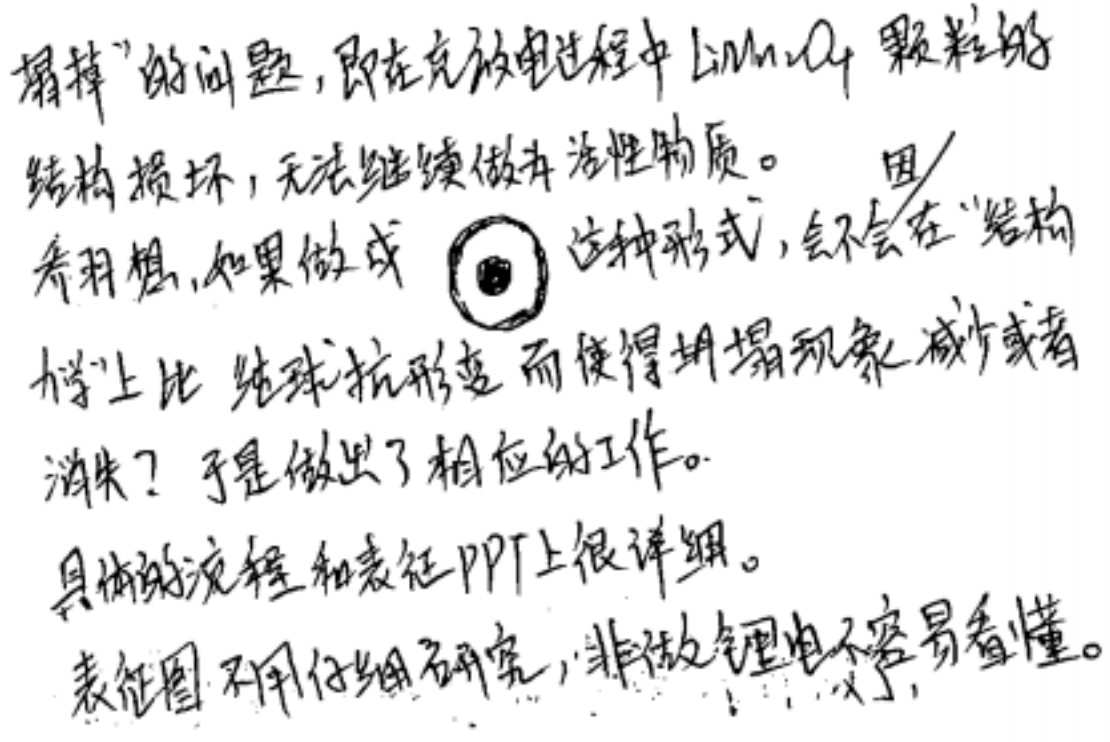 塌掉”的问题,即在充放电过程中LiMn₂O₄ 颗粒的
结构损坏,无法继续做为活性物质。
乔羽想,如果做成 这种形式,会不会因在“结构
力学”上比 纯球抗形变 而使得坍塌现象减少或者
消失?于是做出了相应的工作。
具体的流程和表征PPT上很详细。
表征图不用仔细研究,非做锂电不容易看懂。